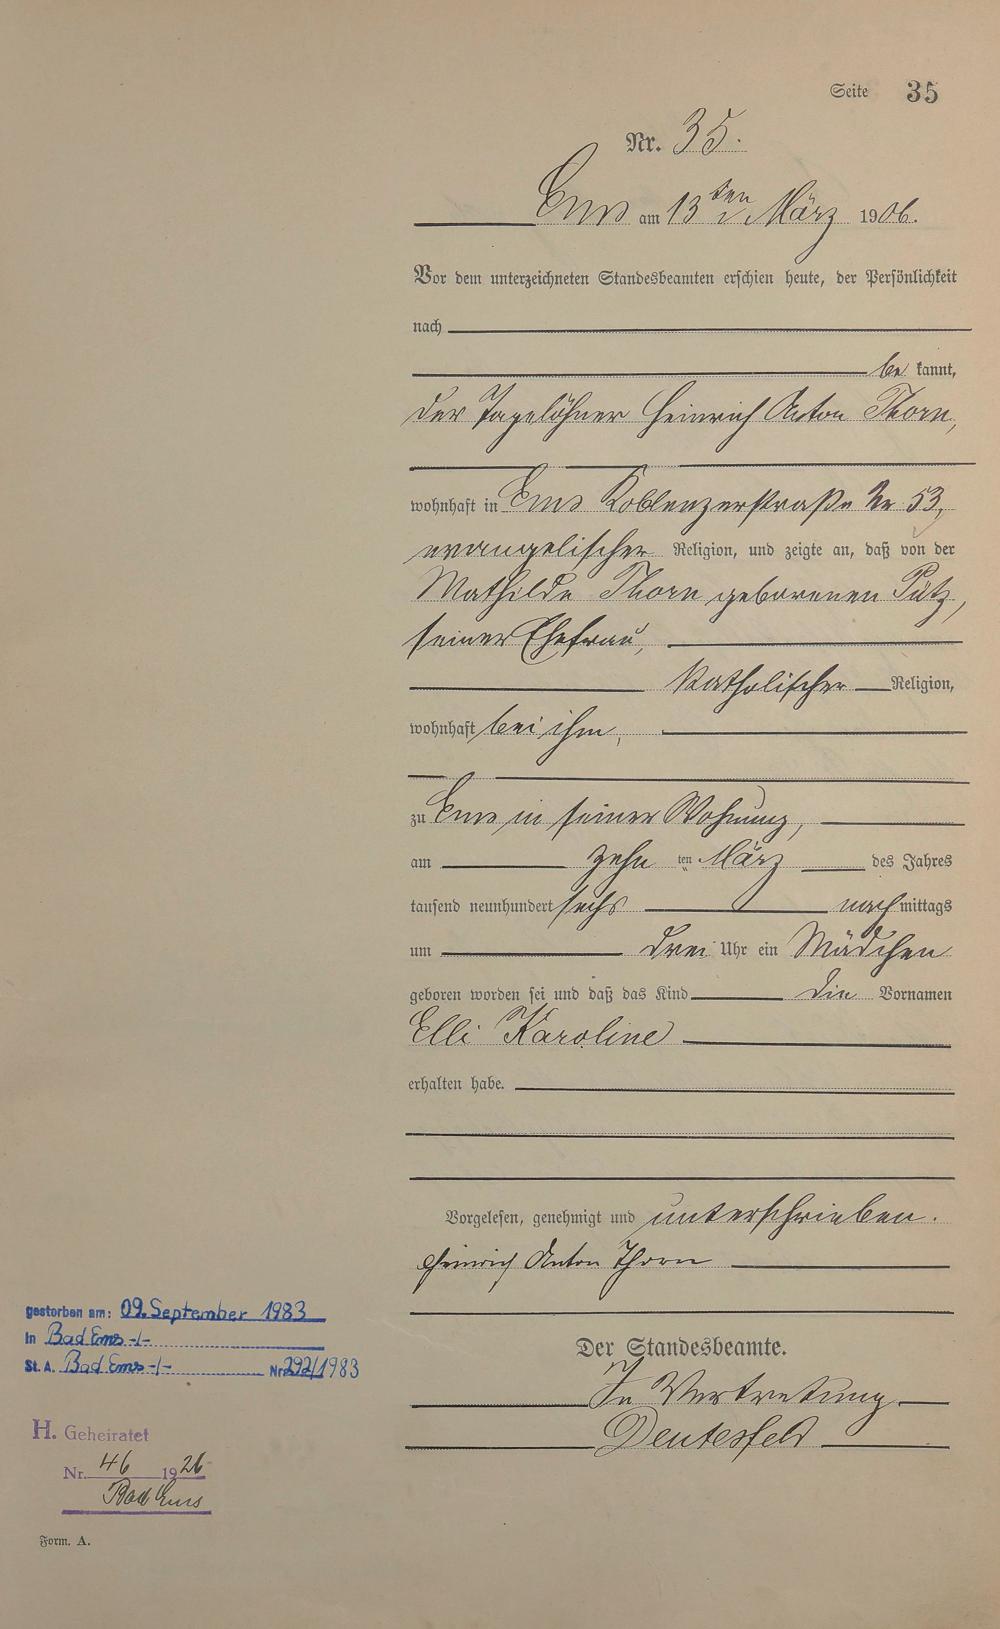 Seite 35
Nr. 35.
Ems am 13ten März 1906.
Vor dem unterzeichneten Standesbeamten erschien heute, der Persönlichkeit
nach
be kannt,
der Tagelöhner Heinrich Anton Thorn,
wohnhaft in Ems Koblenzerstraße Nr 53,
evangelischer Religion, und zeigte an, daß von der
Mathilde Thorn geborenen Pütz,
seiner Ehefrau,
katholischer Religion,
wohnhaft bei ihm,
zu Ems in seiner Wohnung,
am zehn ten März des Jahres
tausend neunhundert sechs nachmittags
um drei Uhr ein Mädchen
geboren worden sei und daß das Kind die Vornamen
Elli Karoline
erhalten habe.
Vorgelesen, genehmigt und unterschrieben.
Heinrich Anton Thorn
Der Standesbeamte.
In Vertretung
Deutesfeld
gestorben am: 09. September 1983
in Bad Ems -/-
St. A. Bad Ems -/- Nr. 292/1983
H. Geheiratet
Nr. 46 1926
Bad Ems
Form. A.